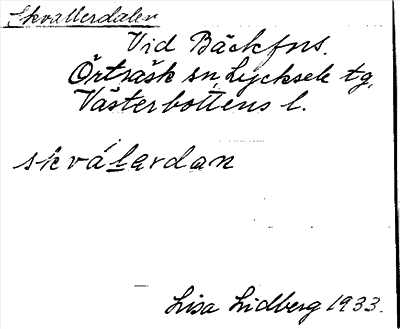 Skvallerdalen
Vid Bäckfors.
Örträsk sn, Lycksele tg,
Västerbottens l.
skválardan
Lisa Lidberg 1933.